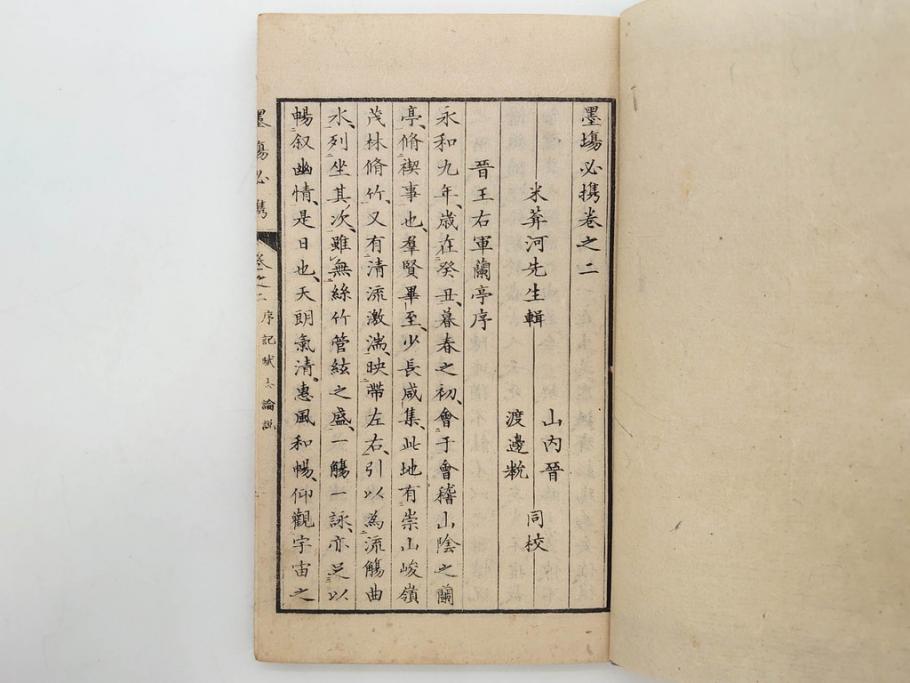 墨場必攜卷之二
米葊河先生輯
山內晉
渡邊
同校
晉王右軍蘭亭序
永和九年歲在癸丑暮春之初會于會稽山陰之蘭
亭脩禊事也羣賢畢至少長咸集此地有崇山峻嶺
茂林脩竹又有清流激湍映帶左右引以為流觴曲
水列坐其次雖無絲竹管絃之盛一觴一詠亦足以
暢叙幽情是日也天朗氣清惠風和暢仰觀宇宙之
墨場必攜
卷之二
序記賦
論說